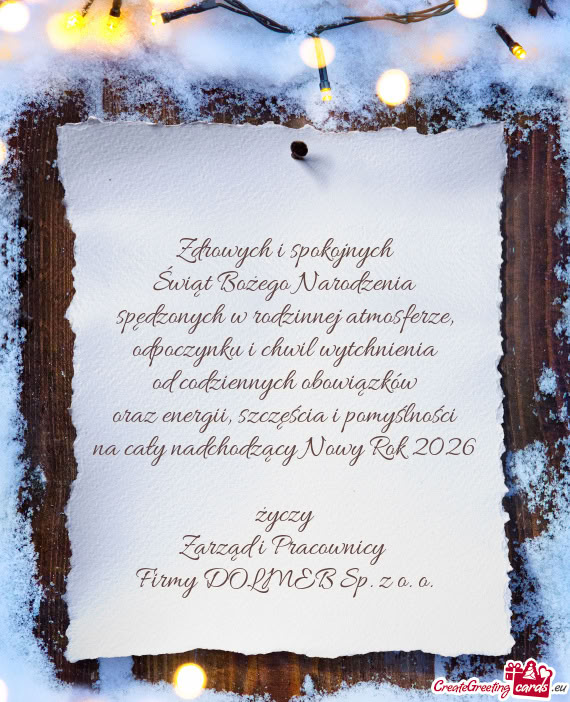 Zdrowych i spokojnych
Świąt Bożego Narodzenia
spędzonych w rodzinnej atmosferze,
odpoczynku i chwil wytchnienia
od codziennych obowiązków
oraz energii, szczęścia i pomyślności
na cały nadchodzący Nowy Rok 2026
życzy
Zarząd i Pracownicy
Firmy DOLMEB Sp. z o. o.
CreateGreeting cards .eu